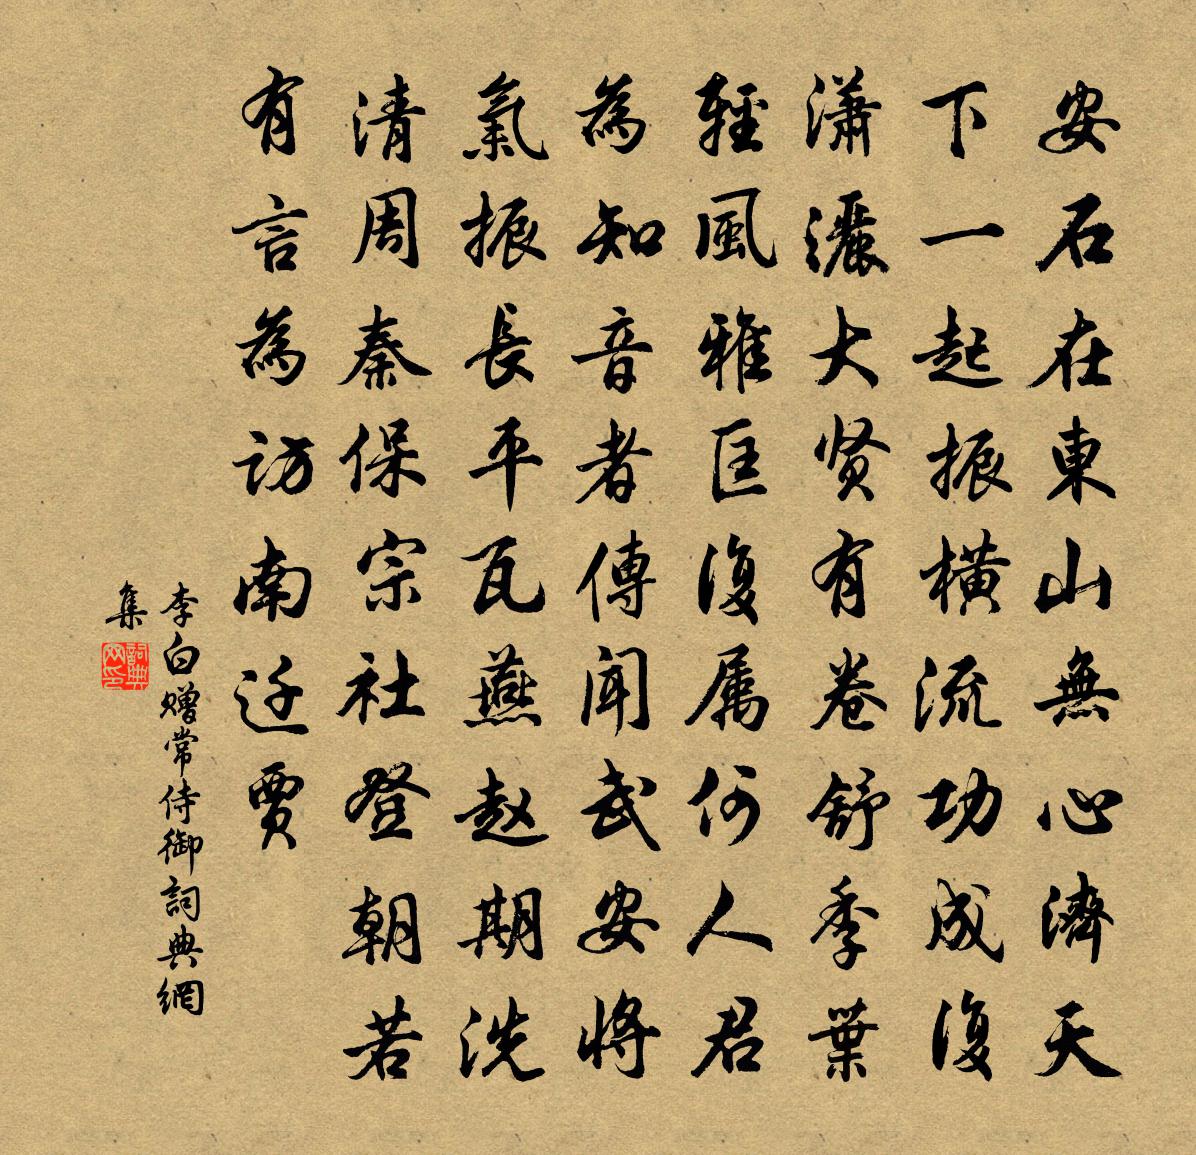 安石在東山無心濟天
下一起振橫流功成復
瀟灑大贤有卷舒季葉
輕風雅匡復属何人君
為知音者傳闻武安將
氣振長平瓦燕赵期洗
清周秦保宗社登朝若
有言為访南迁贾
李白赠常侍御詞典網
集
詞典
网印